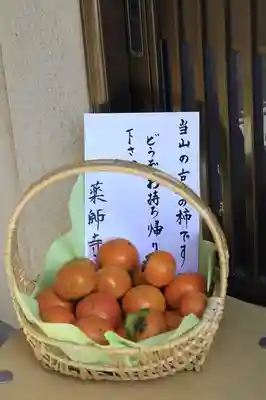 当山の古木の柿です
どうぞお持ち帰り
下さ
薬師寺